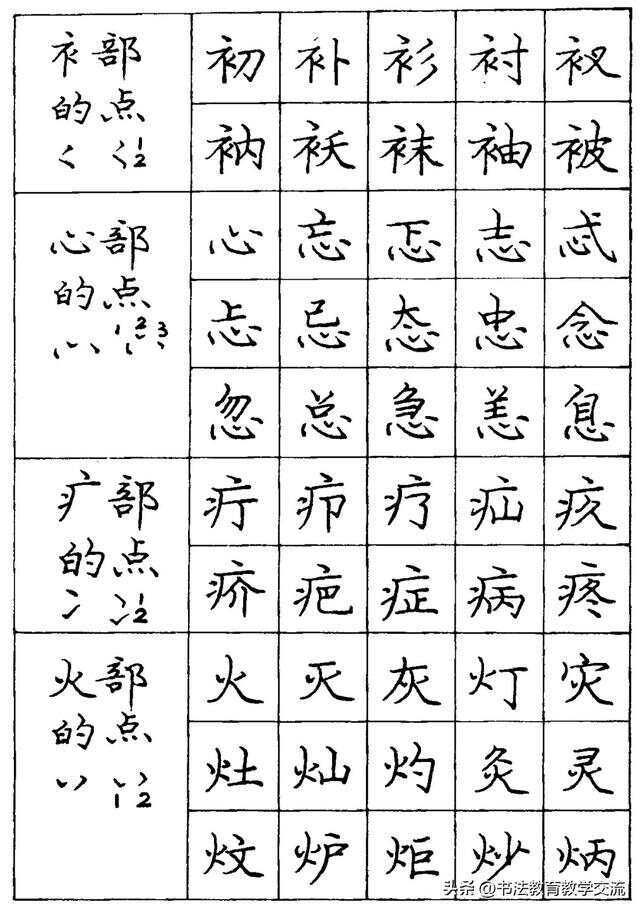 衤部
的点
1 2
初 补 衫 衬 衩
衲 袄 袜 袖 被
心部
的点
1 2 3
心 忘 忑 志 忒
忐 忌 态 忠 念
忽 总 急 恙 息
疒部
的点
1 2
疔 疖 疗 疝 疚
疥 疤 症 病 疼
火部
的点
1 2
火 灭 灰 灯 灾
灶 灿 灼 灸 灵
炆 炉 炬 炒 炳
头条 @书法教育教学交流